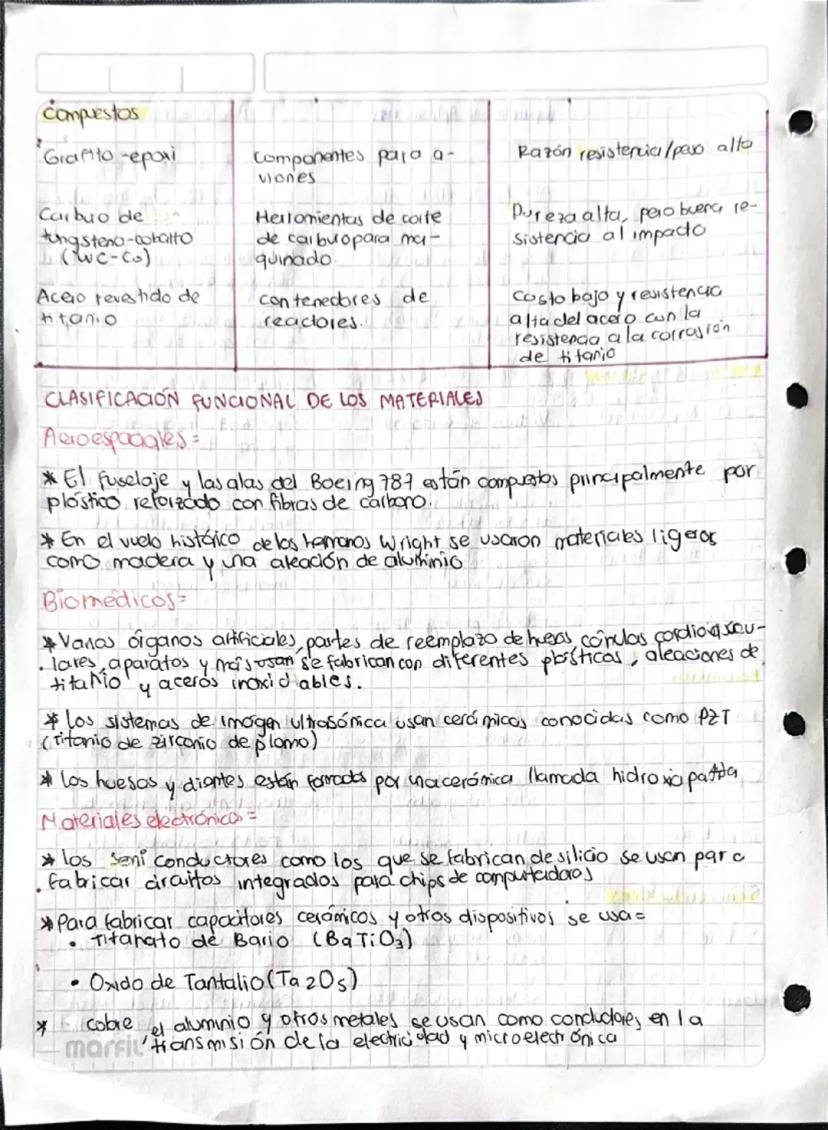 Compuestos
Grafito-epoxi
Componentes para a-
viones
Razón resistencia/peso alta
Carburo de
tungsteno-cobalto
(WC-Co)
Herramientas de corte
de carburo para ma-
quinado.
Dureza alta, pero buena re-
sistencia al impacto
Acero revestido de
titanio
contenedores de
reactores.
Costo bajo y resistencia
alta del acero con la
resistencia a la corrosión
de titanio
CLASIFICACIÓN FUNCIONAL DE LOS MATERIALES
Aeroespaciales=
* El fuselaje y las alas del Boeing 787 están compuestos principalmente por
plástico reforzado con fibras de carbono.
* En el vuelo histórico de los hermanos Wright se usaron materiales ligeros
como madera y una aleación de aluminio
Biomédicos=
* Varios órganos artificiales, partes de reemplazo de huesos, cánulas cardiovascu-
lares, aparatos y más usan se fabrican con diferentes plásticos, aleaciones de
titanio y aceros inoxidables.
* Los sistemas de imagen ultrasónica usan cerámicas conocidas como PZT
(Titanio de zirconio de plomo)
* Los huesos y dientes están formados por una cerámica llamada
Materiales electrónicos=
* Los semi conductores como los que se fabrican de silicio se usan para
fabricar circuitos integrados para chips de computadoras
* Para fabricar capacitores cerámicos y otros dispositivos se usa=
• Titanato de Bario (BaTiO3)
• Oxido de Tantalio (Ta2O5)
* cobre, el alumnio y otros metales se usan como conductores en la
transmisión de la electricidad y microelectrónica
marfil